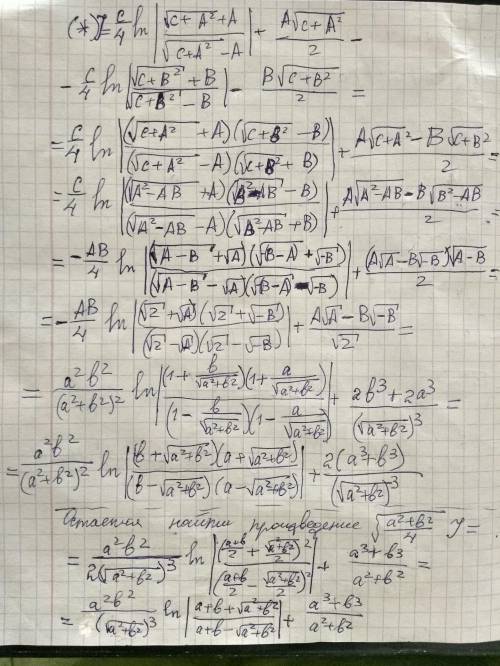 (*) J = c/4 ln |(√(c+A²) + A)/(√(c+A²) − A)| + A√(c+A²)/2 −
− c/4 ln |(√(c+B²) + B)/(√(c+B²) − B)| − B√(c+B²)/2 =
= c/4 ln |((√(c+A²) + A)(√(c+B²) − B))/((√(c+A²) − A)(√(c+B²) + B))| + (A√(c+A²) − B√(c+B²))/2 =
= c/4 ln |((√(A²−AB) + A)(√(B²−AB) − B))/((√(A²−AB) − A)(√(B²−AB) + B))| + (A√(A²−AB) − B√(B²−AB))/2 =
= −AB/4 ln |((√(A−B) + √A)(√(B−A) + √−B))/((√(A−B) − √A)(√(B−A) − √−B))| + (A√A − B√−B)√(A−B)/2 =
= −AB/4 ln |((√2 + √A)(√2 + √−B))/((√2 − √A)(√2 − √−B))| + (A√A − B√−B)/√2 =
= a²b²/(a²+b²)² ln |((1 + b/√(a²+b²))(1 + a/√(a²+b²)))/((1 − b/√(a²+b²))(1 − a/√(a²+b²)))| + (2b³ + 2a³)/(√(a²+b²))³ =
= a²b²/(a²+b²)² ln |((b + √(a²+b²))(a + √(a²+b²)))/((b − √(a²+b²))(a − √(a²+b²)))| + 2(a³+b³)/(√(a²+b²))³
Остается найти произведение √((a²+b²)/4) J =
= a²b²/(2(√(a²+b²))³) ln |((a+b)/2 + √(a²+b²)/2)²/((a+b)/2 − √(a²+b²)/2)²| + (a³+b³)/(a²+b²) =
= a²b²/(√(a²+b²))³ ln |(a+b+√(a²+b²))/(a+b−√(a²+b²))| + (a³+b³)/(a²+b²)